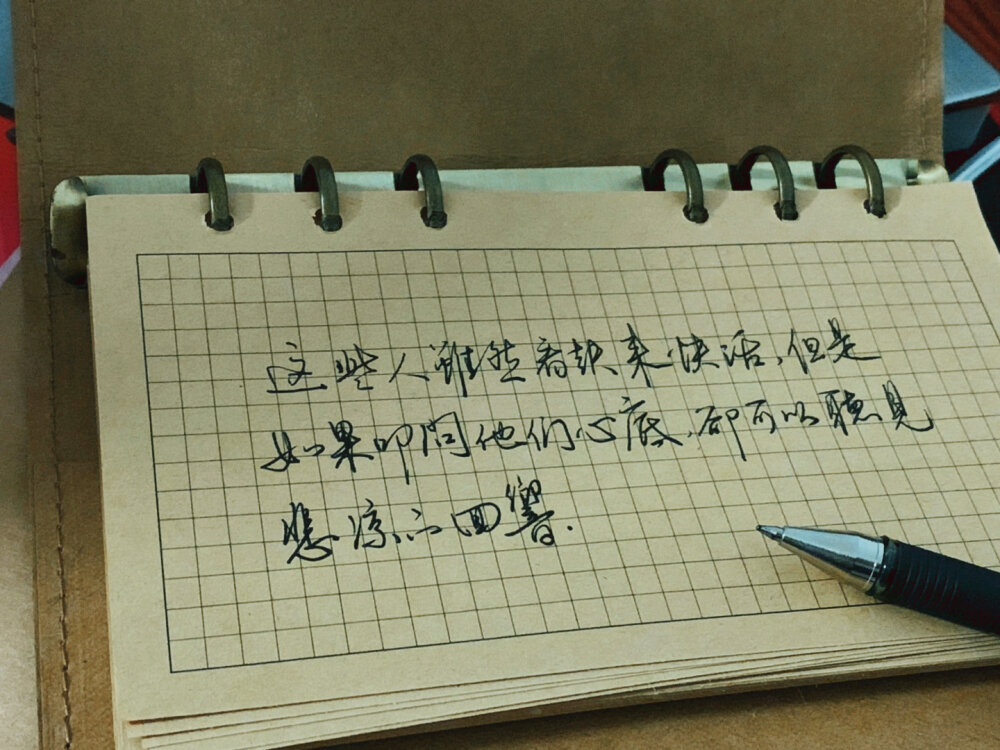 这些人虽然看起来快活,但是
如果叩问他们心底,却可以聽見
悲凉的回響.